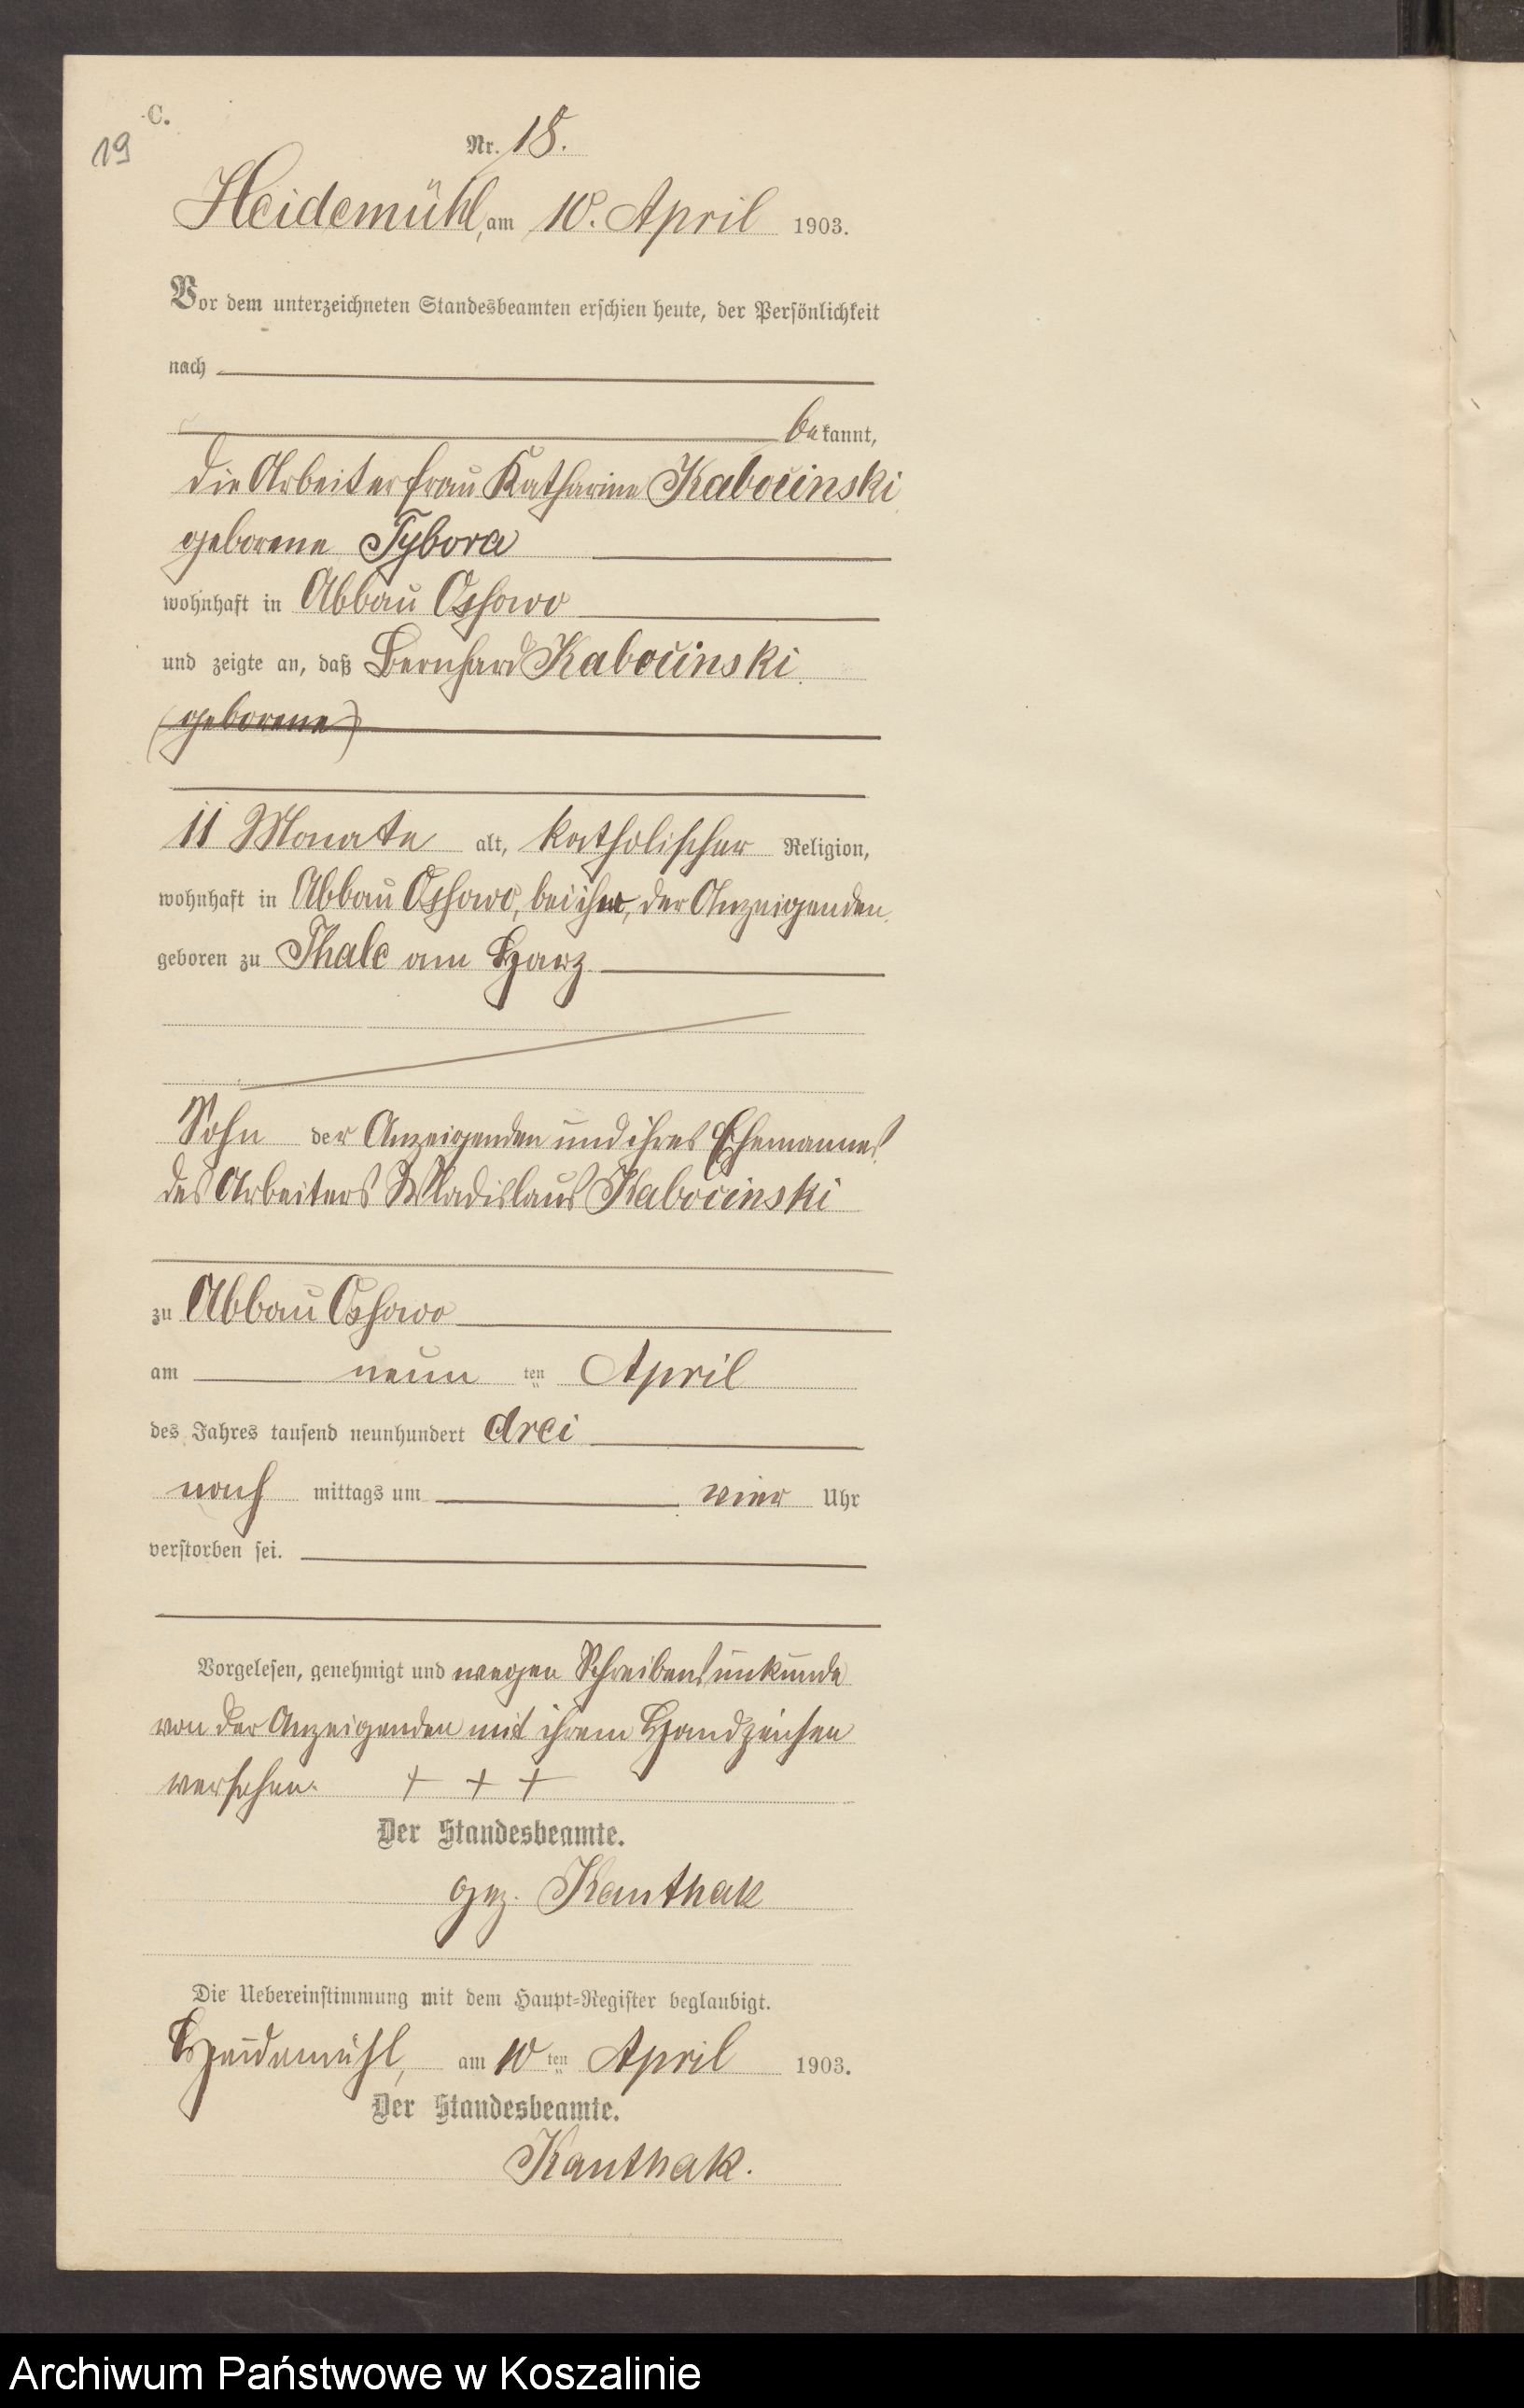 C.
19
Nr. 18.
Heidemühl, am 10. April 1903.
Vor dem unterzeichneten Standesbeamten erschien heute, der Persönlichkeit
nach
bekannt,
die Arbeiterfrau Katharine Kabocinski
geborene Tybora
wohnhaft in Abbau Ossowo
und zeigte an, daß Bernhard Kabocinski
(geborene)
11 Monate alt, katholischer Religion,
wohnhaft in Abbau Ossowo, bei ihr, der Anzeigenden
geboren zu Thale am Harz
Sohn der Anzeigenden und ihres Ehemannes
des Arbeiters Wladislaus Kabocinski
zu Abbau Ossowo
am neun ten April
des Jahres tausend neunhundert drei
nach mittags um vier Uhr
verstorben sei.
Vorgelesen, genehmigt und wegen Schreibensunkunde
von der Anzeigenden mit ihrem Handzeichen
versehen. + + +
Der Standesbeamte.
gez. Kanthak
Die Uebereinstimmung mit dem Haupt-Register beglaubigt.
Heidemühl, am 10 ten April 1903.
Der Standesbeamte.
Kanthak.
Archiwum Państwowe w Koszalinie